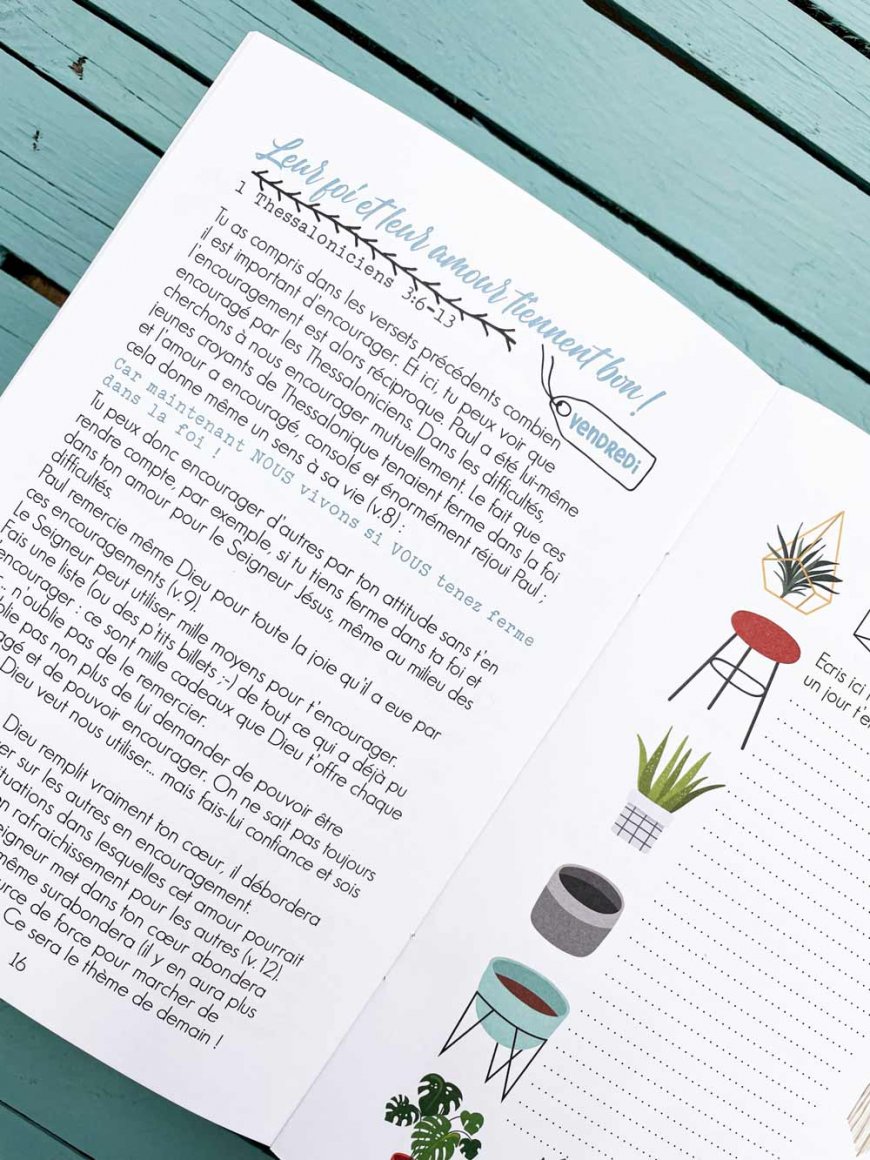 Leur foi et leur amour tiennent bon !
1 Thessaloniciens 3:6-13
VENDREDi
Tu as compris dans les versets précédents combien
il est important d'encourager. Et ici, tu peux voir que
l'encouragement est alors réciproque. Paul a été lui-même
encouragé par les Thessaloniciens. Dans les difficultés,
cherchons à nous encourager mutuellement. Le fait que ces
jeunes croyants de Thessalonique tenaient ferme dans la foi
et l'amour a encouragé, consolé et énormément réjoui Paul ;
cela donne même un sens à sa vie (v.8) :
Car maintenant NOUS vivons si VOUS tenez ferme
dans la foi !
Tu peux donc encourager d'autres par ton attitude sans t'en
rendre compte, par exemple, si tu tiens ferme dans ta foi et
dans ton amour pour le Seigneur Jésus, même au milieu des
difficultés.
Paul remercie même Dieu pour toute la joie qu'il a eue par
ces encouragements (v.9).
Le Seigneur peut utiliser mille moyens pour t'encourager.
Fais une liste (ou des p'tits billets ;-) de tout ce qui a déjà pu
t'encourager : ce sont mille cadeaux que Dieu t'offre chaque
... n'oublie pas de le remercier.
pas non plus de lui demander de pouvoir être
et de pouvoir encourager. On ne sait pas toujours
Dieu veut nous utiliser... mais fais-lui confiance et sois
Dieu remplit vraiment ton cœur, il débordera
sur les autres en encouragement.
dans lesquelles cet amour pourrait
rafraichissement pour les autres (v.12).
met dans ton cœur abondera
même surabondera (il y en aura plus
de force pour marcher de
Ce sera le thème de demain !
16
Ecris ici
un jour